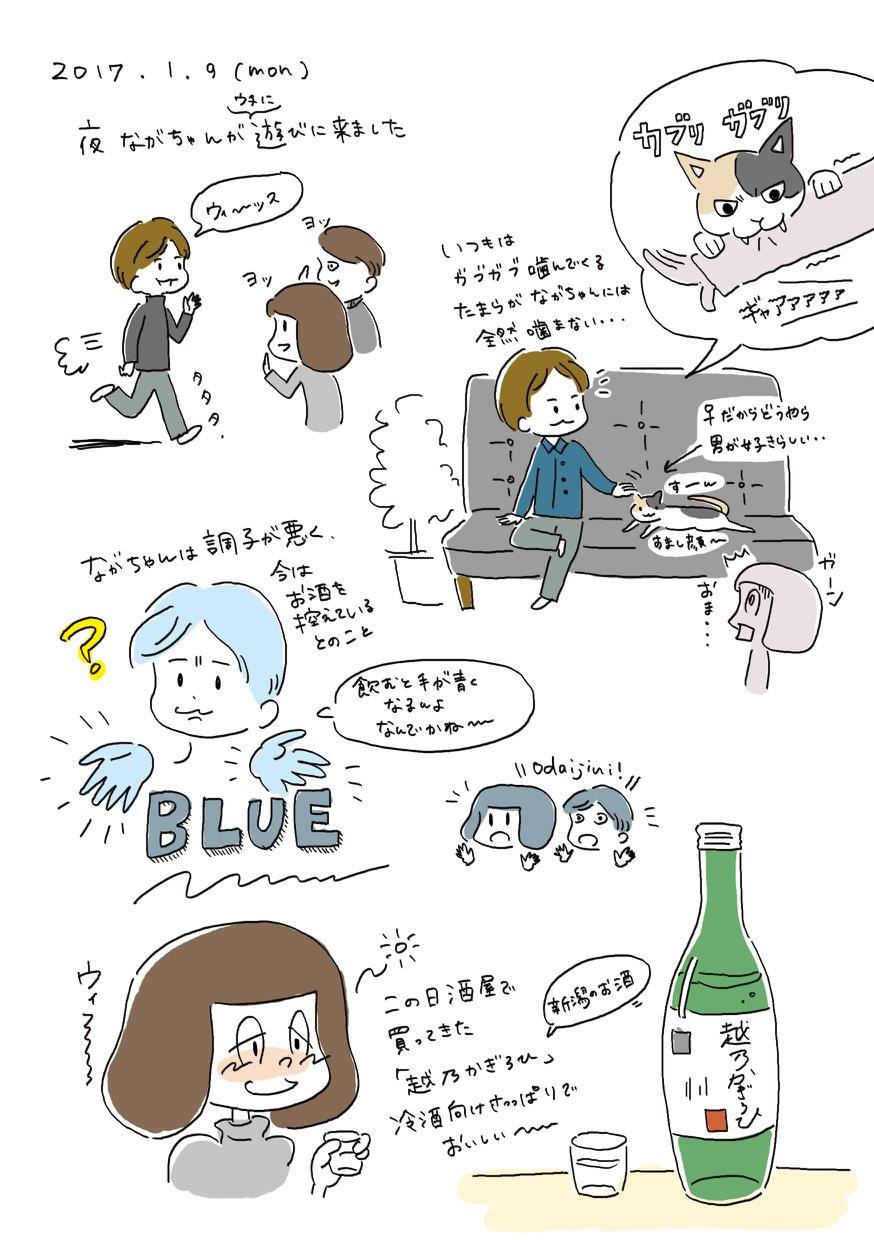 2017.1.9(mon)
ウチに
夜 ながちゃんが遊びに来ました
ウィ〜ッス
ヨッ
ヨッ
タタタ.
カブリ ガブリ
ギャアアアアア
いつもは
ガブガブ噛んでくる
たまらが ながちゃんには
全然 噛まない・・・
早だからどうやら
男が好きらしい・・
すーん
すまし顔〜
ガーン
おま・・・
ながちゃんは 調子が悪く、
今は
お酒を
控えている
とのこと
?
飲むと手が青く
なるんよ
なんでかね〜〜
BLUE
odaijini!
ウィ〜〜
この日酒屋で
買ってきた
「越乃かぎろひ」
冷酒向けさっぱりで
おいしい〜〜
新潟のお酒
越乃かぎろひ